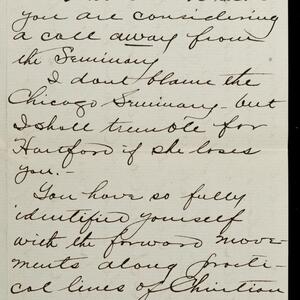 you are considering
a call away from
the Seminary
I dont blame the
Chicago Seminary - but
I shall tremble for
Hartford if she loses
you. -
You have so fully
identified yourself
with the forward move-
ments along practi-
cal lines of Christian